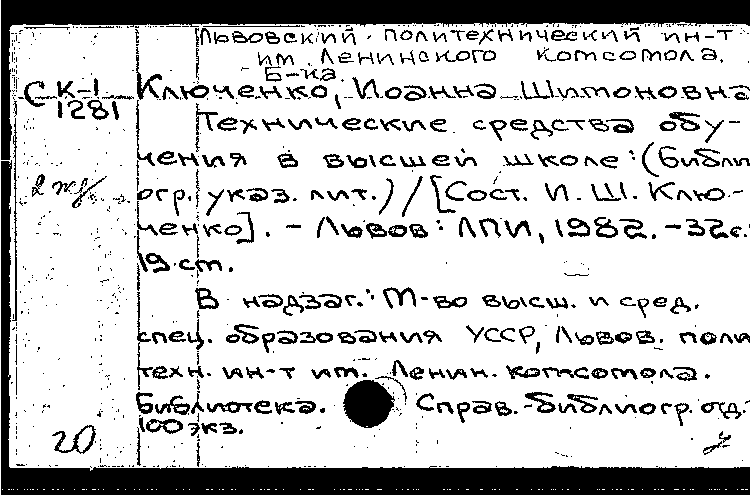 Львовский политехнический ин-т
им. Ленинского комсомола.
Б-ка.
С К-1
1281
Ключенко, Иоанна Шимоновна
Технические средства обу-
чения в высшей школе: (Библи
огр. указ. лит.) / [Сост. И. Ш. Клю-
ченко]. - Львов: ЛПИ, 1982. - 32с.
19 см.
В надзаг.: М-во высш. и сред.
спец. образования УССР, Львов. поли
техн. ин-т им. Ленин. комсомола.
Библиотека. Справ.-библиогр. отд.
100 экз.
20